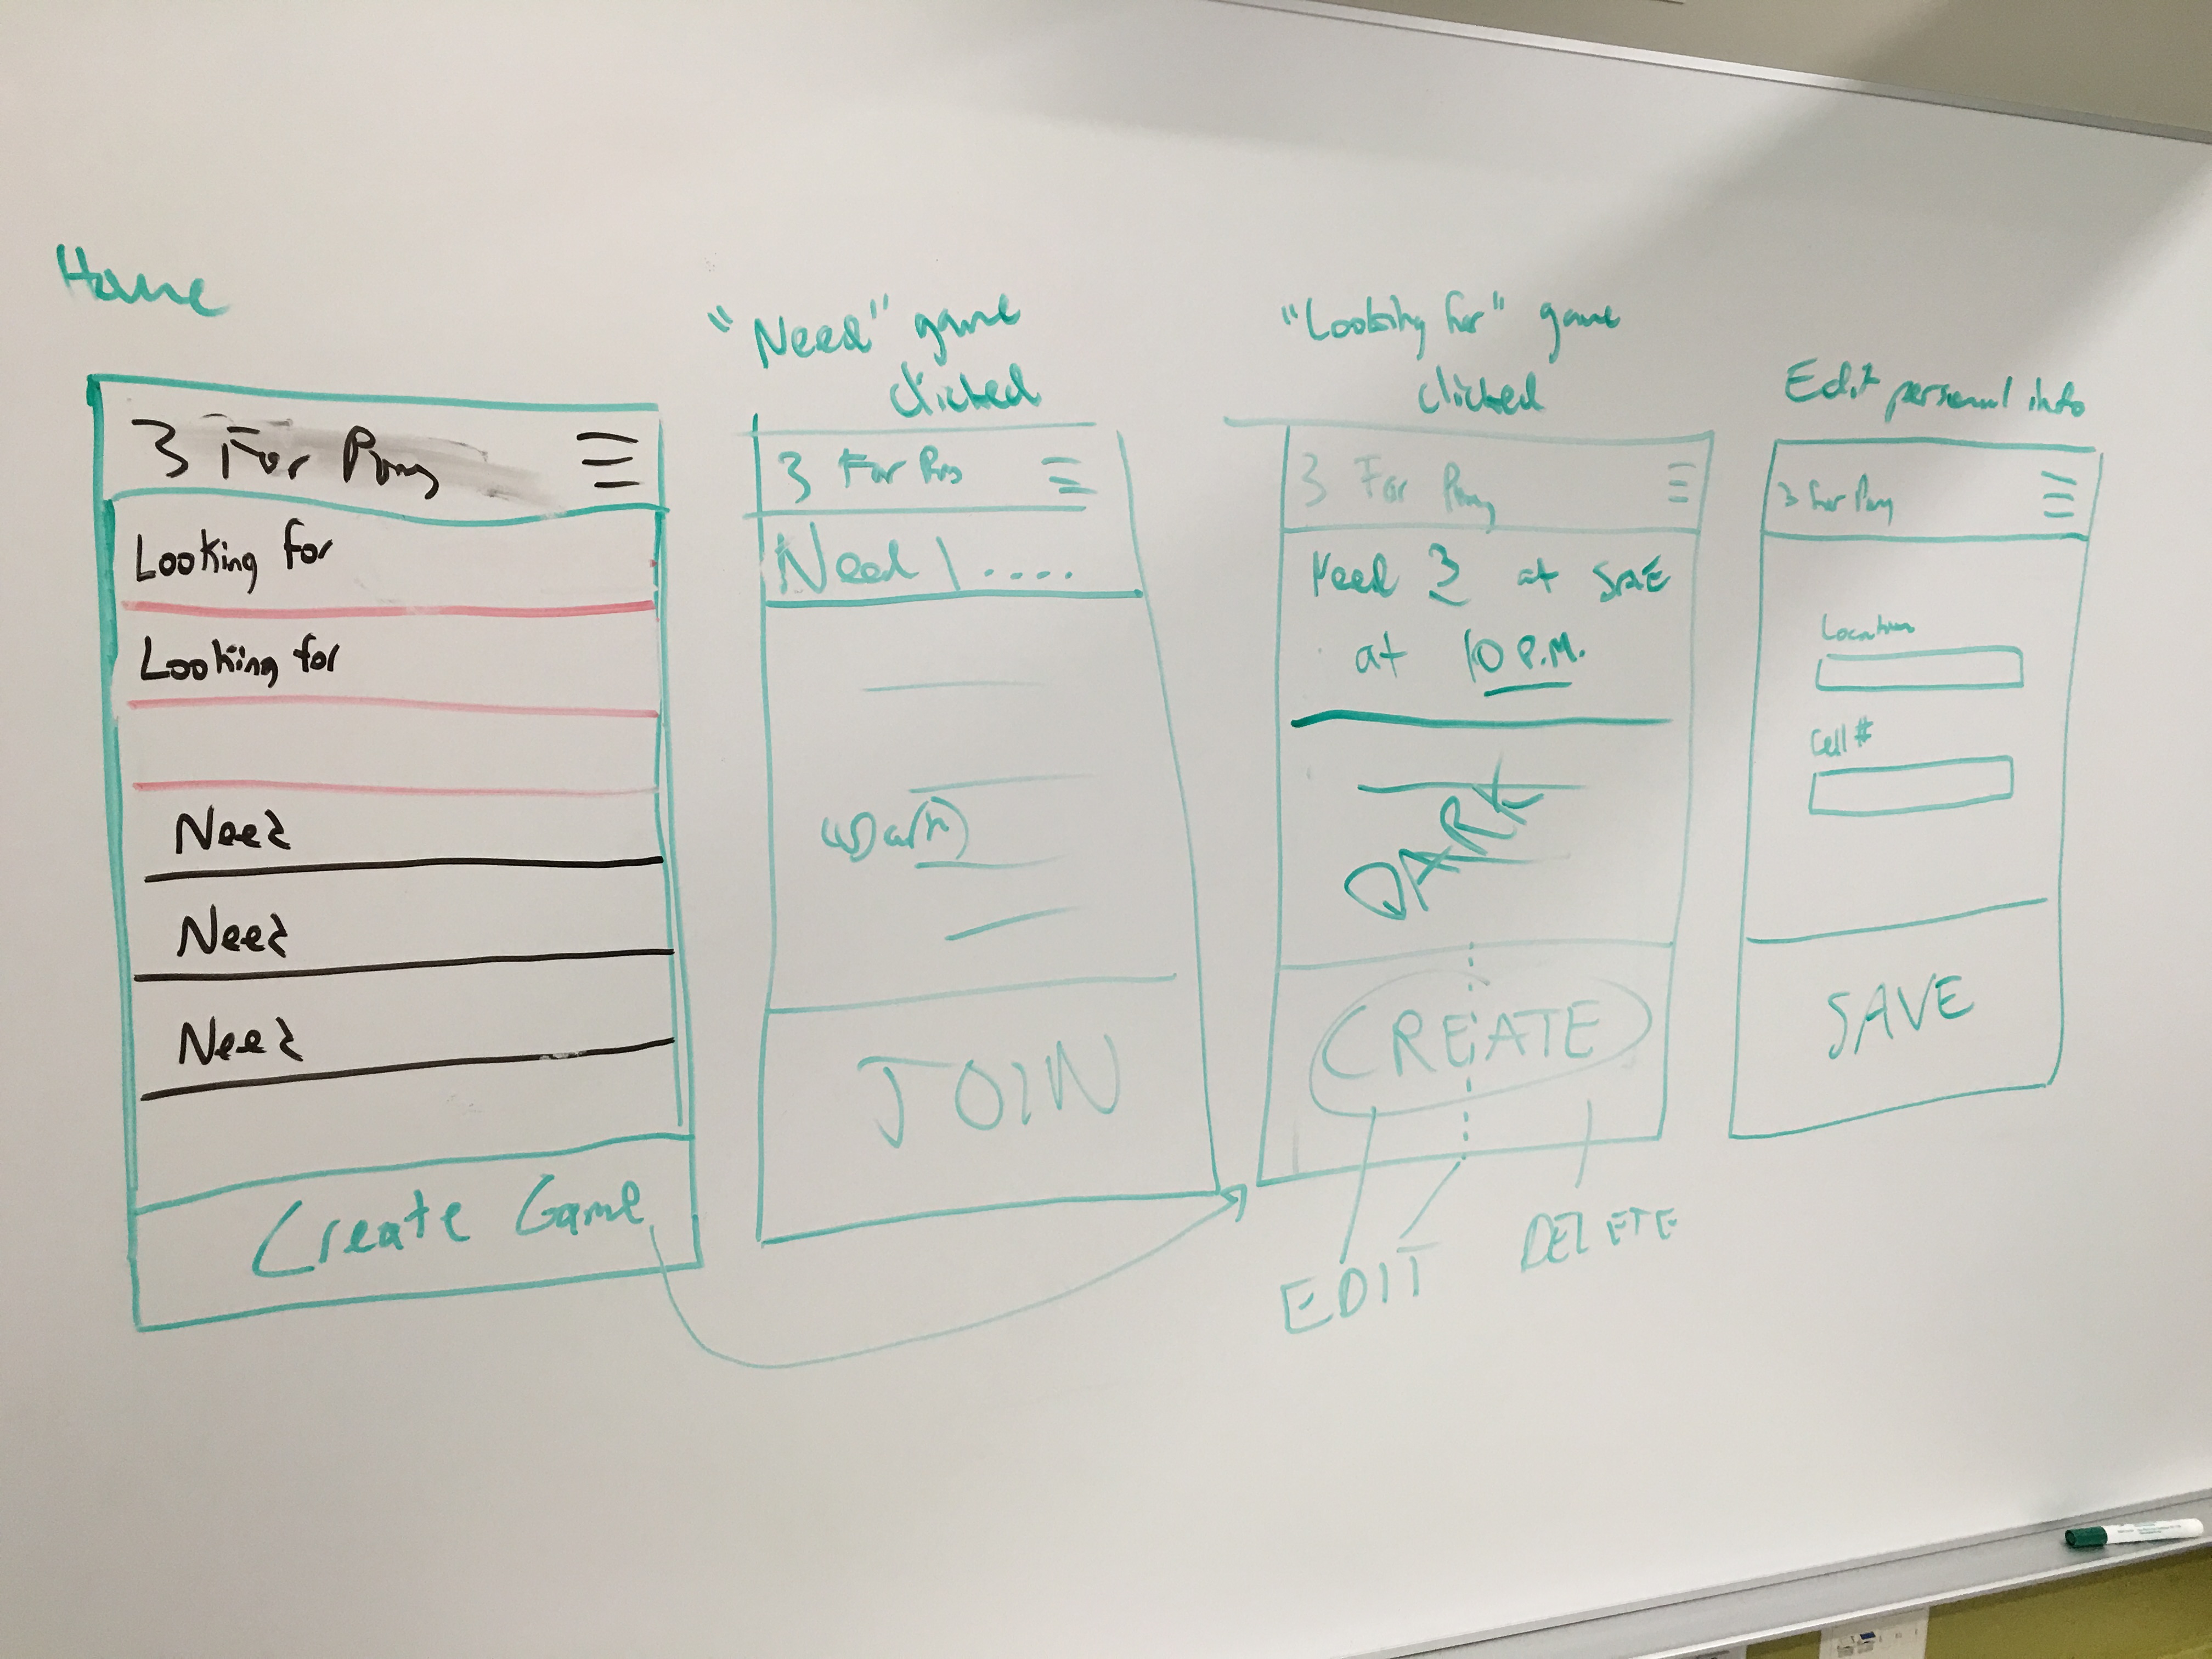 Home
3 For Pong
Looking for
Looking for
Need
Need
Need
Create Game
"Need" game
clicked
3 For Pong
Need 1 ....
(Dark)
JOIN
"Looking for" game
clicked
3 For Pong
Need 3 at SAE
at 10 P.M.
DARK
CREATE
EDIT
DELETE
Edit personal info
3 For Pong
Location
Cell #
SAVE